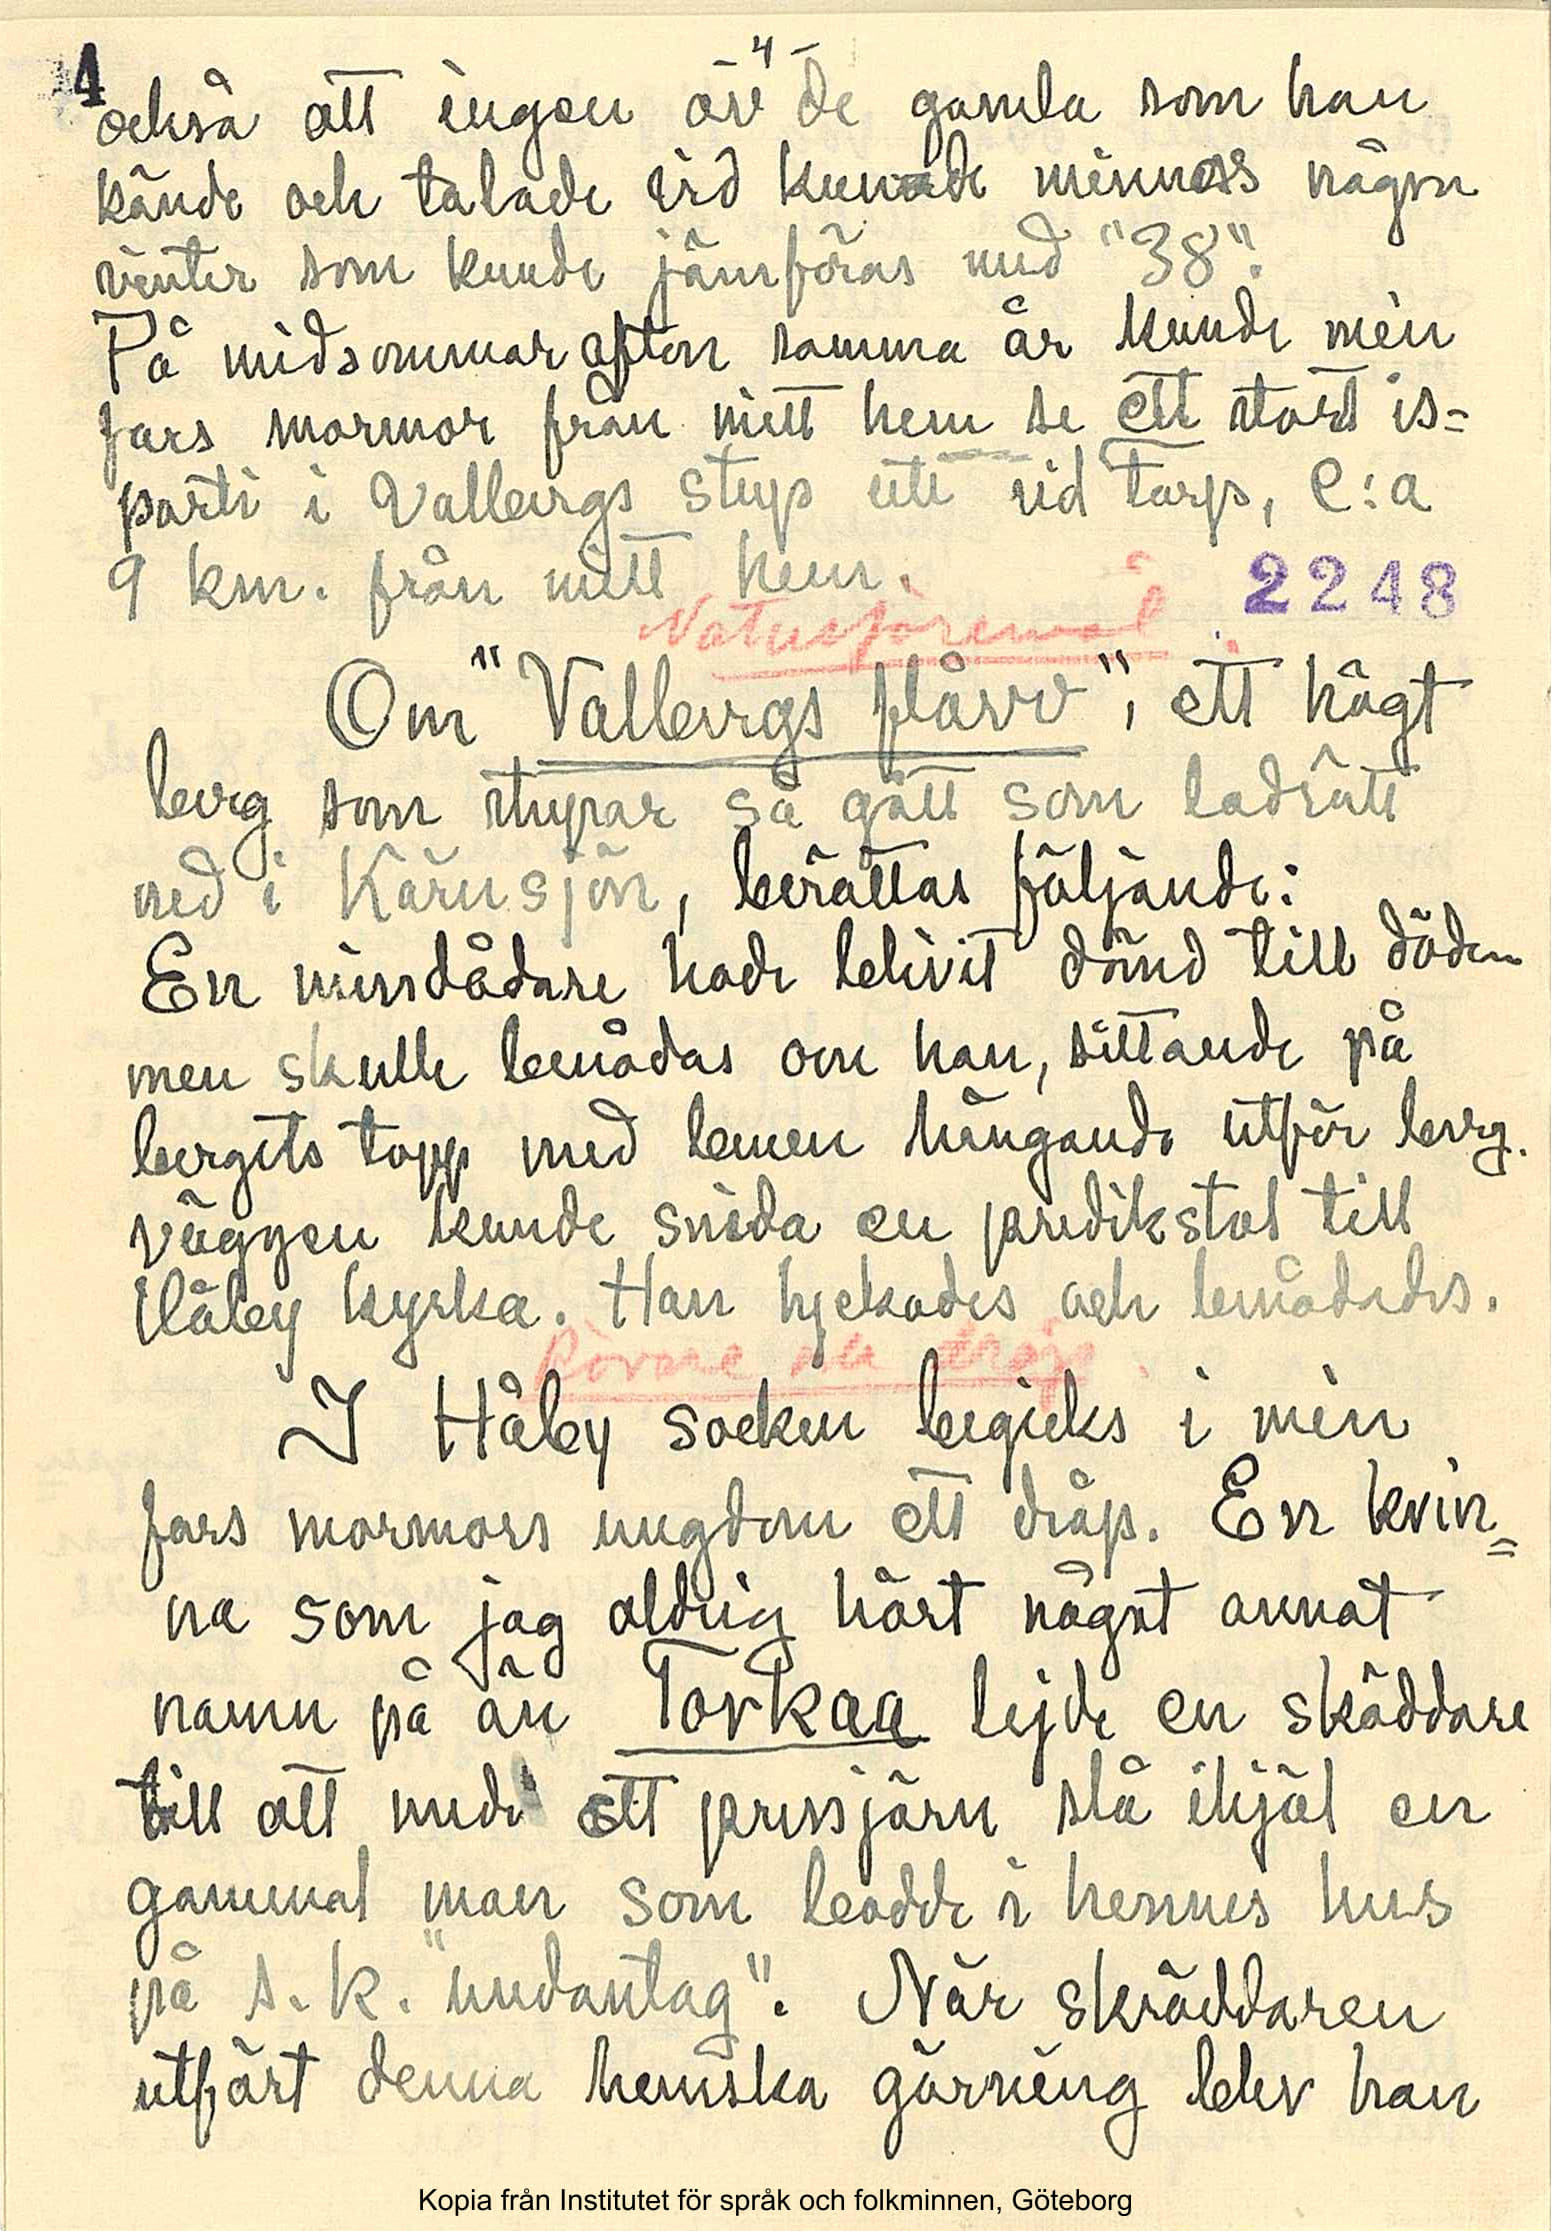 4
- 4 -
också att ingen av de gamla som han
kände och talade vid kunde minnas någon
vinter som kunde jämföras med "38".
På midsommarafton samma år kunde min
fars mormor från mitt hem se ett stort is=
parti i Vallbergs stup ute vid Torp, c:a
9 km. från mitt hem.
Naturföremål 2248
Om "Vallbergs flåvv", ett högt
berg som stupar så gått som lodrätt
ned i Kärnsjön, berättas följande:
En missdådare hade blivit dömd till döden
men skulle benådas om han, sittande på
bergets topp med benen hängande utför berg.
väggen kunde snida en predikstol till
Håby kyrka. Han lyckades och benådades.
Rövare och dråp.
I Håby socken begicks i min
fars mormors ungdom ett dråp. En kvin=
na som jag aldrig hört något annat
namn på än Torkaa lejde en skäddare
till att med ett pressjärn slå ihjäl en
gammal man som bodde i hennes hus
på s.k. "undantag". När skräddaren
utfört denna hemska gärning blev han
Kopia från Institutet för språk och folkminnen, Göteborg